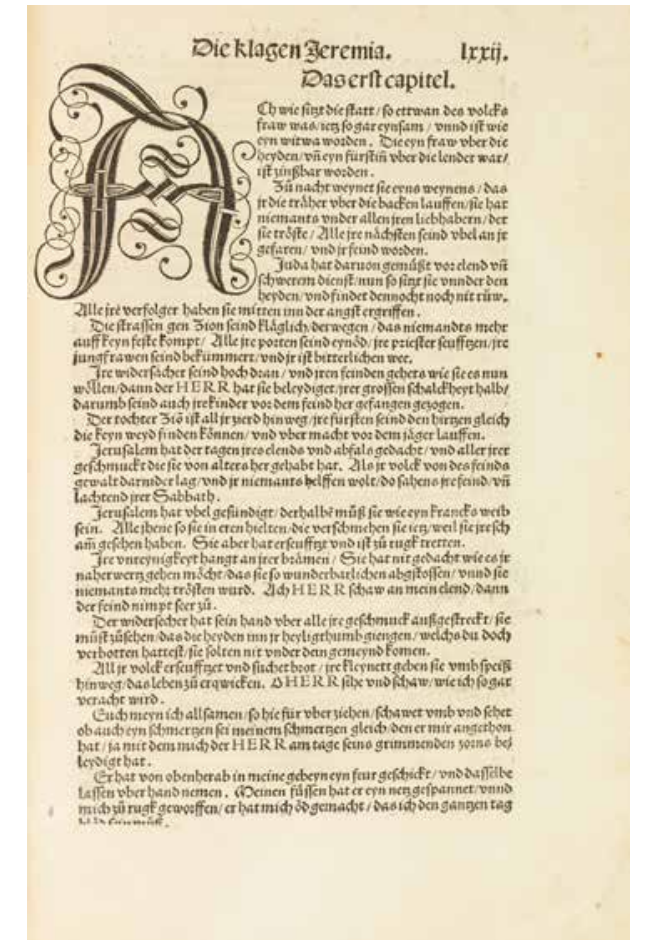 Die klagen Jeremia. lxxij.
Das erst capitel.
ACh wie sitzt die statt / so ettwan des volcks
fraw was / ietz so gar eynsam / vnnd ist wie
eyn witwa worden. Die eyn fraw vber die
heyden / vn̄ eyn fürstin̄ vber die lender war /
ist zinßbar worden.
Zů nacht weynet sie eyns weynens / das
jr die träher vber die backen lauffen / sie hat
niemants vnder allen jren liebhabern / der
sie tröste / Alle jre nächsten seind vbel an jr
gefaren / vnd jr feind worden.
Juda hat daruon gemüßt vor elend vn̄
schwerem dienst / nun so sitzt sie vnnder den
heyden / vnd findet dennocht noch nit rüw.
Alle jrē verfolger haben sie mitten inn der angst ergriffen.
Die strassen gen Zion seind kläglich / derwegen / das niemandts mehr
auff keyn feste kompt / Alle jre porten seind eynöd / jre priester seufftzen / jre
jungfrawen seind bekümmert / vnd jr ist bitterlichen wee.
Jre widersächer seind hoch dran / vnd jren feinden gehets wie sie es nun
wöllen / dann der HERR hat sie beleydiget / jrer grossen schalckheyt halb /
darumb seind auch jre kinder vor dem feind her gefangen gezogen.
Der tochter Ziō ist all jr zierd hinweg / jre fürsten seind den hirtzen gleich
die keyn weyd finden können / vnd vber macht vor dem jäger lauffen.
Jerusalem hat der tagen jres elends vnd abfals gedacht / vnd aller jrer
geschmuckt die sie von alters her gehabt hat. Als jr volck von des feinds
gewalt darnider lag / vnd jr niemants helffen wolt / do sahens jre feind / vn̄
lachtend jrer Sabbath.
Jerusalem hat vbel gesündigt / derhalbē můß sie wie eyn krancks weib
sein. Alle jhene so sie in eren hielten / die verschmehen sie ietz / weil sie jre sch
am̄ gesehen haben. Sie aber hat erseufftzt vnd ist zů rugk tretten.
Jre vnreynigkeyt hangt an jrer brämen / Sie hat nit gedacht wie es jr
naherwertz gehen möcht / das sie so wunderbarlichen abgstossen / vnnd sie
niemants mehr trösten wurd. Ach HERR schaw an mein elend / dann
der feind nimpt seer zů.
Der widersecher hat sein hand vber alle jre geschmuck außgestreckt / sie
můst zůsehen / das die heyden inn jr heyligthumb giengen / welchs du doch
verbotten hattest / sie solten nit vnder dein gemeynd komen.
All jr volck erseufftzet vnd suchet brot / jre kleynett geben sie vmb speiß
hinweg / das leben zů erqwicken. O HERR sihe vnd schaw / wie ich so gar
veracht wird.
Euch meyn ich allsamen / so hie für vber ziehen / schawet vmb vnd sehet
ob auch eyn schmertzen sei meinem schmertzen gleich / den er mir angethon
hat / ja mit dem mich der HERR am tage seins grimmenden zorns be/
leydigt hat.
Er hat von obenherab in meine gebeyn eyn feur geschickt / vnd dasselbe
lassen vber hand nemen. Meinen füssen hat er eyn netz gespannet / vnnd
mich zů rugk geworffen / er hat mich öd gemacht / das ich den gantzen tag